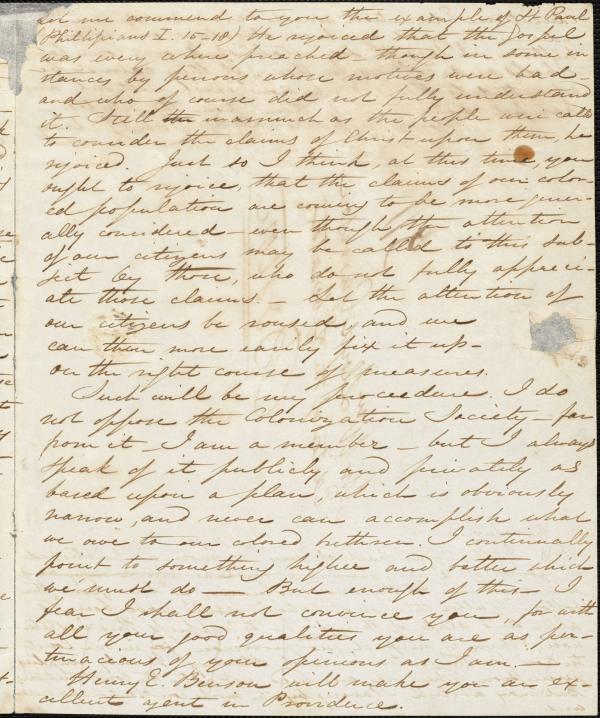 let me commend to you the example of St Paul
Phillipians I. 15-18) He rejoiced that the Gospel
was every where preached - though in some in
stances by persons whose motives were bad -
and who of course did not fully understand
it. Still the inasmuch as the people were calld
to consider the claims of Christ upon them, he
rejoiced. Just so I think, at this time, you
ought to rejoice, that the claims of our color
ed population are coming to be more gener-
ally considered - even though the attention
of our citizens may be called to this sub-
ject by those, who do not fully appreci-
ate those claims. - Let the attention of
our citizens be roused, and we
can then more easily fix it up-
on the right course of measures.
Such will be my proceedure. I do
not oppose the Colonization Society - far
from it - I am a member - but I always
speak of it publicly and privately as
based upon a plan, which is obviously
narrow, and never can accomplish what
we owe to our colored brethren. I continually
point to something higher and better which
we must do — But enough of this - I
fear I shall not convince you, for with
all your good qualities you are as per-
tinacious of your opinions as I am. -
Henry E. Benson will make you an ex-
cellent agent in Providence.